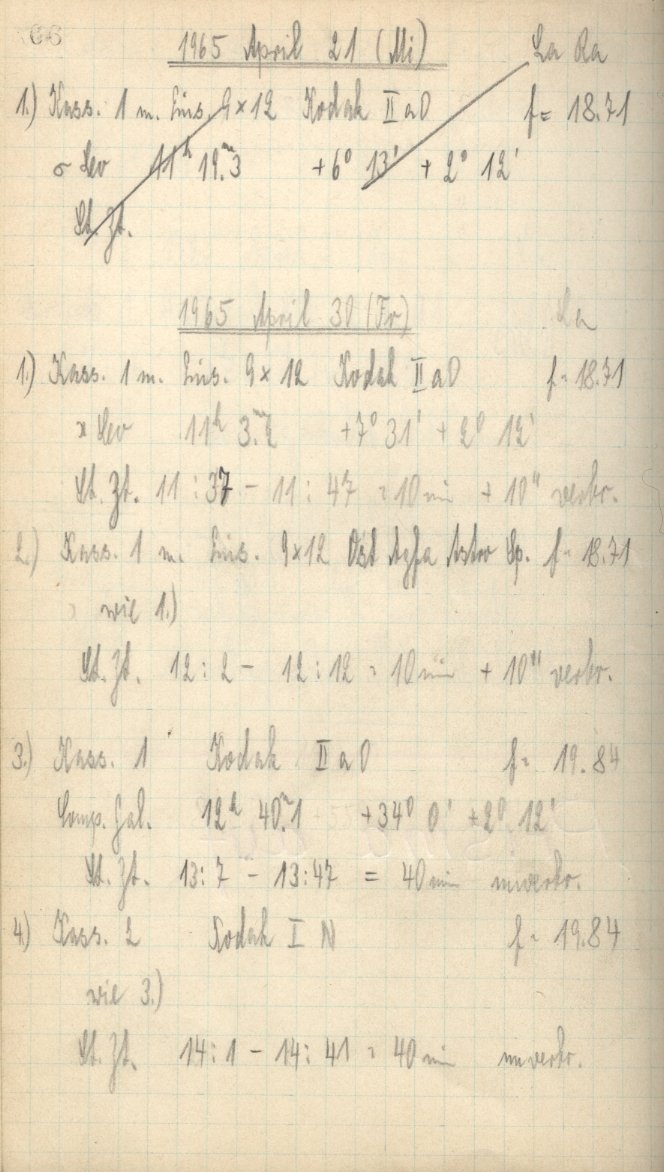 66
1965 April 21 (Mi) La Ra
1.) Kass. 1 m. Eins. 9×12 Kodak II a O f = 18.71
σ Leo 11ʰ 19.ᵐ3 +6° 13' + 2° 12'
St. Zt.
1965 April 30 (Fr) La
1.) Kass. 1 m. Eins. 9×12 Kodak II a O f = 18.71
x Leo 11ʰ 3.ᵐ2 +7° 31' + 2° 12'
St. Zt. 11 : 37 - 11 : 47 = 10 min + 10" verbr.
2.) Kass. 1 m. Eins. 9×12 Ost Agfa Astro Sp. f = 18.71
wie 1.)
St. Zt. 12 : 2 - 12 : 12 = 10 min + 10" verbr.
3.) Kass. 1 Kodak II a O f = 19.84
Comp. Gal. 12ʰ 40.ᵐ1 +34° 0' +2° 12'
St. Zt. 13 : 7 - 13 : 47 = 40 min unverbr.
4.) Kass. 2 Kodak I N f = 19.84
wie 3.)
St. Zt. 14 : 1 - 14 : 41 = 40 min unverbr.